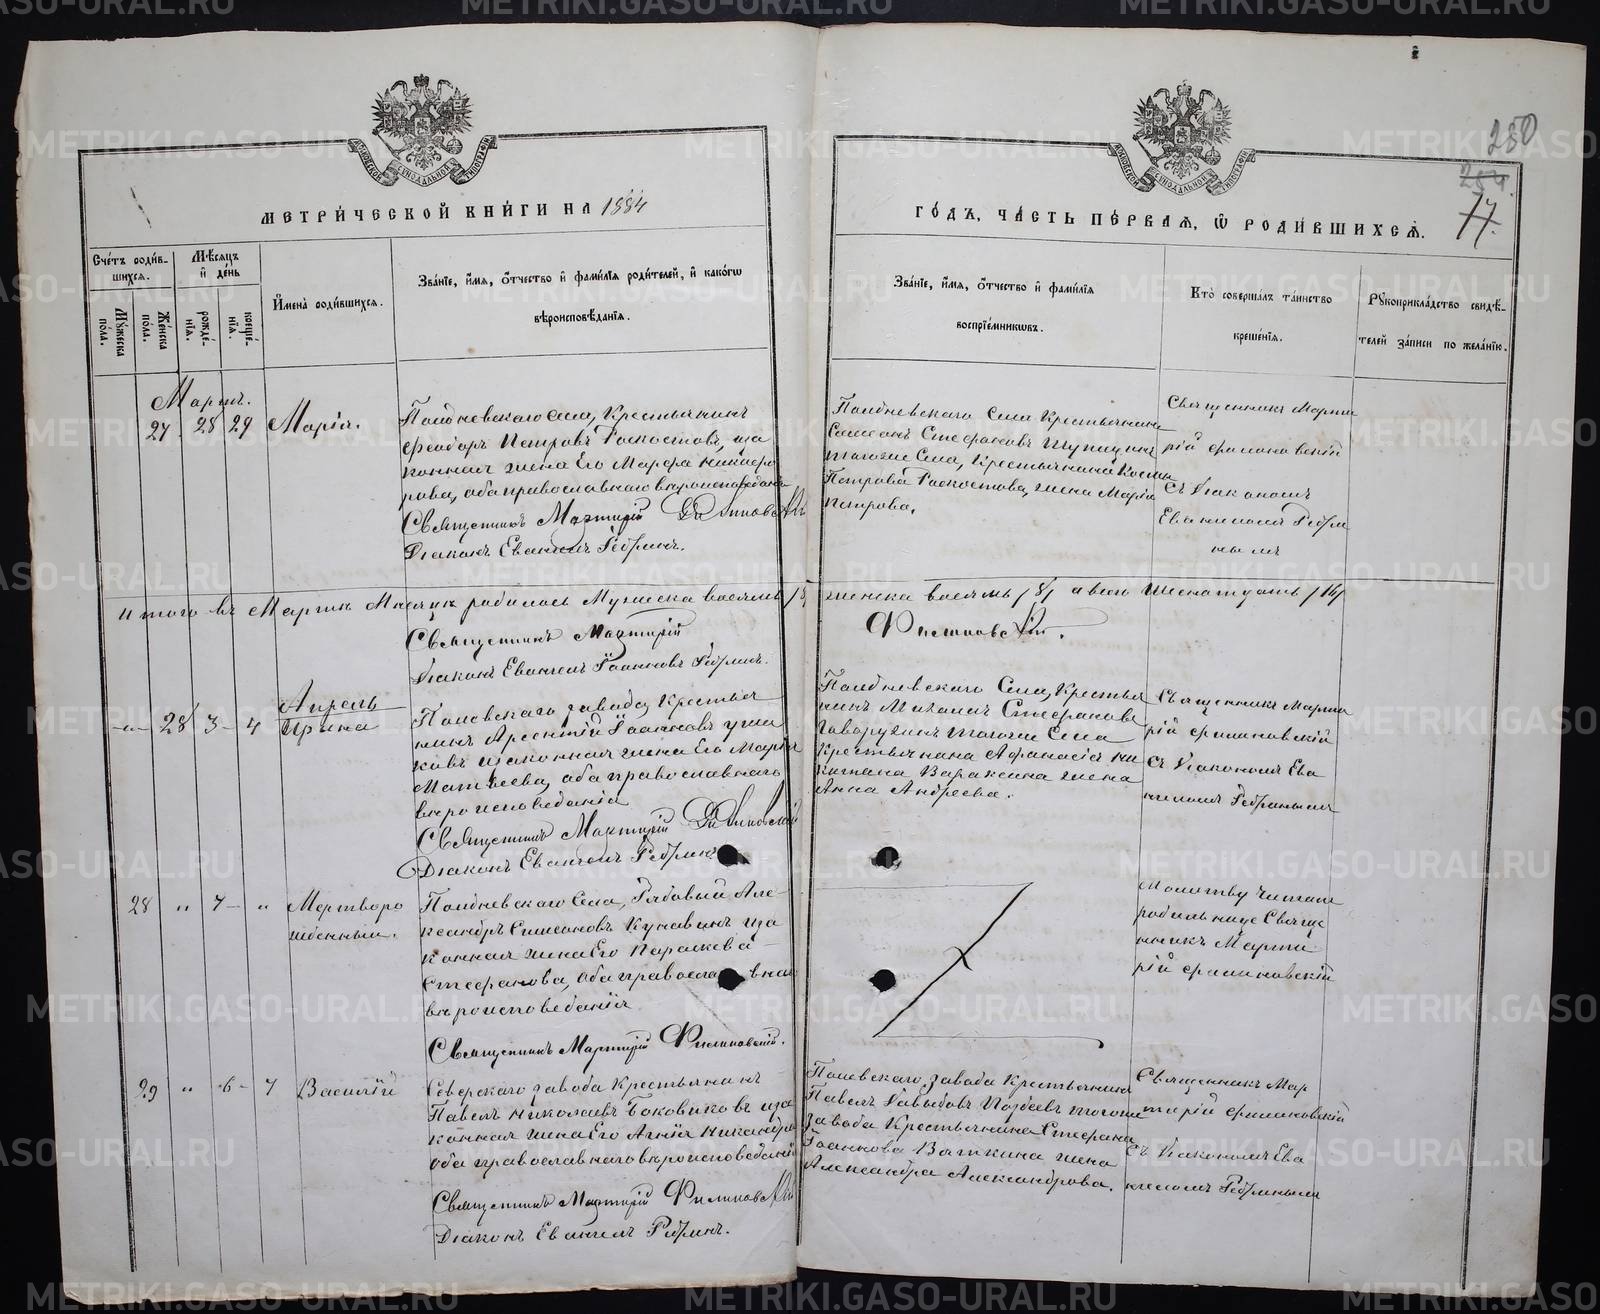 МЕТРИ́ЧЕСКОЙ КНИ́ГИ НА 1884
ГО́ДЪ, ЧА́СТЬ ПЕ́РВАЯ, Ѡ РОДИ́ВШИХСѦ.
250
254.
77.
Сче́тъ роди́в-
шихся.
Мѣ́сяцъ
и де́нь
Му́жеска
по́ла.
Же́нска
по́ла.
рожде́-
нїя.
креще́-
нїя.
И҆мена̀ роди́вшихся.
Зва́нїе, и҆́мя, ѻ҆́тчество и҆ фами́лїя роди́телей, и҆ како́гѡ
вѣроисповѣ́данїя.
Зва́нїе, и҆́мя, ѻ҆́тчество и҆ фами́лїя
воспрїе́мникѡвъ.
Кто̀ соверша́лъ та́инство
креще́нїя.
Рꙋкоприкла́дство свидѣ́-
телей за́писи по жела́нїю.
Мартъ.
27 28 29 Марія.
Полдневскаго Села, Крестьянинъ
Феодоръ Петровъ Раскостовъ, и за
конная жена Его Марфа Никифо
рова, оба православнаго вѣроисповѣданія
Священникъ Мартирій Филиновскій
Діаконъ Евангелъ Ребринъ.
Полдневскаго Села Крестьянинъ
Стефановъ
тогоже Села, Крестьянина
Петрова Раскостова, жена Марія
Петрова.
Священникъ Марти
рій Филиновскій
съ Діакономъ
Евангеломъ Ребри
нымъ
Итого въ Мартѣ Мѣсяцѣ родилось Мужеска восемь /8/
женска восемь /8/ а всего шестнадцать /16/
Священникъ Мартирій
Филиновскій.
Діаконъ Евангелъ Іоанновъ Ребринъ.
Апрель
„ 28 3 4 Ирина
Полевскаго завода, Крестья
нинъ Арсентій Іоанновъ Уша
ковъ и законная жена Его Марѳа
Матвеева, оба православнаго
вѣроисповеданія
Священникъ Мартирій Филиновскій
Діаконъ Евангелъ Ребринъ
Полдневскаго Села, Крестья
нинъ Михаилъ Стефановъ
Говорухинъ тогоже Села
Крестьянина Афанасія Ни
китина Вараксина жена
Анна Андреева.
Священникъ Марти
рій Филиновскій
съ Діакономъ Ева
нгеломъ Ребринымъ
28 „ 7 „ Мертворо
жденный.
Полдневскаго Села, Рядовый Але
ксандръ Симеоновъ Кунавинъ и за
конная жена Его Параскева
Стефанова, оба православна
вѣроисповеданія
Священникъ Мартирій Филиновскій.
Молитву читалъ
родильнице Свяще
нникъ Марти
рій Филиновскій
29 „ 6 7 Василій
Северскаго завода Крестьянинъ
Павелъ Николаевъ Боковиковъ и за
конная жена Его Анна Никандро
оба православнаго вѣроисповеданія
Священникъ Мартирій Филиновскій
Діаконъ Евангелъ Ребринъ.
Полевскаго завода Крестьянинъ
Павелъ Давыдовъ тогоже
завода Крестьянина Стефана
Іоаннова Вяткина жена
Александра Александрова.
Священникъ Мар
тирій Филиновскій
съ Діакономъ Ева
нгеломъ Ребринымъ
METRIKI.GASO-URAL.RU